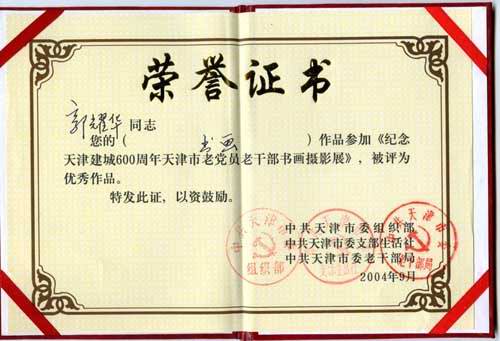 荣誉证书
郭耀华 同志
您的( 书画 )作品参加《纪念
天津建城600周年天津市老党员老干部书画摄影展》，被评为
优秀作品。
特发此证，以资鼓励。
中共天津市委组织部
中共天津市委支部生活社
中共天津市委老干部局
2004年9月
中共天津市委
组织部
中共天津市委
老干部局